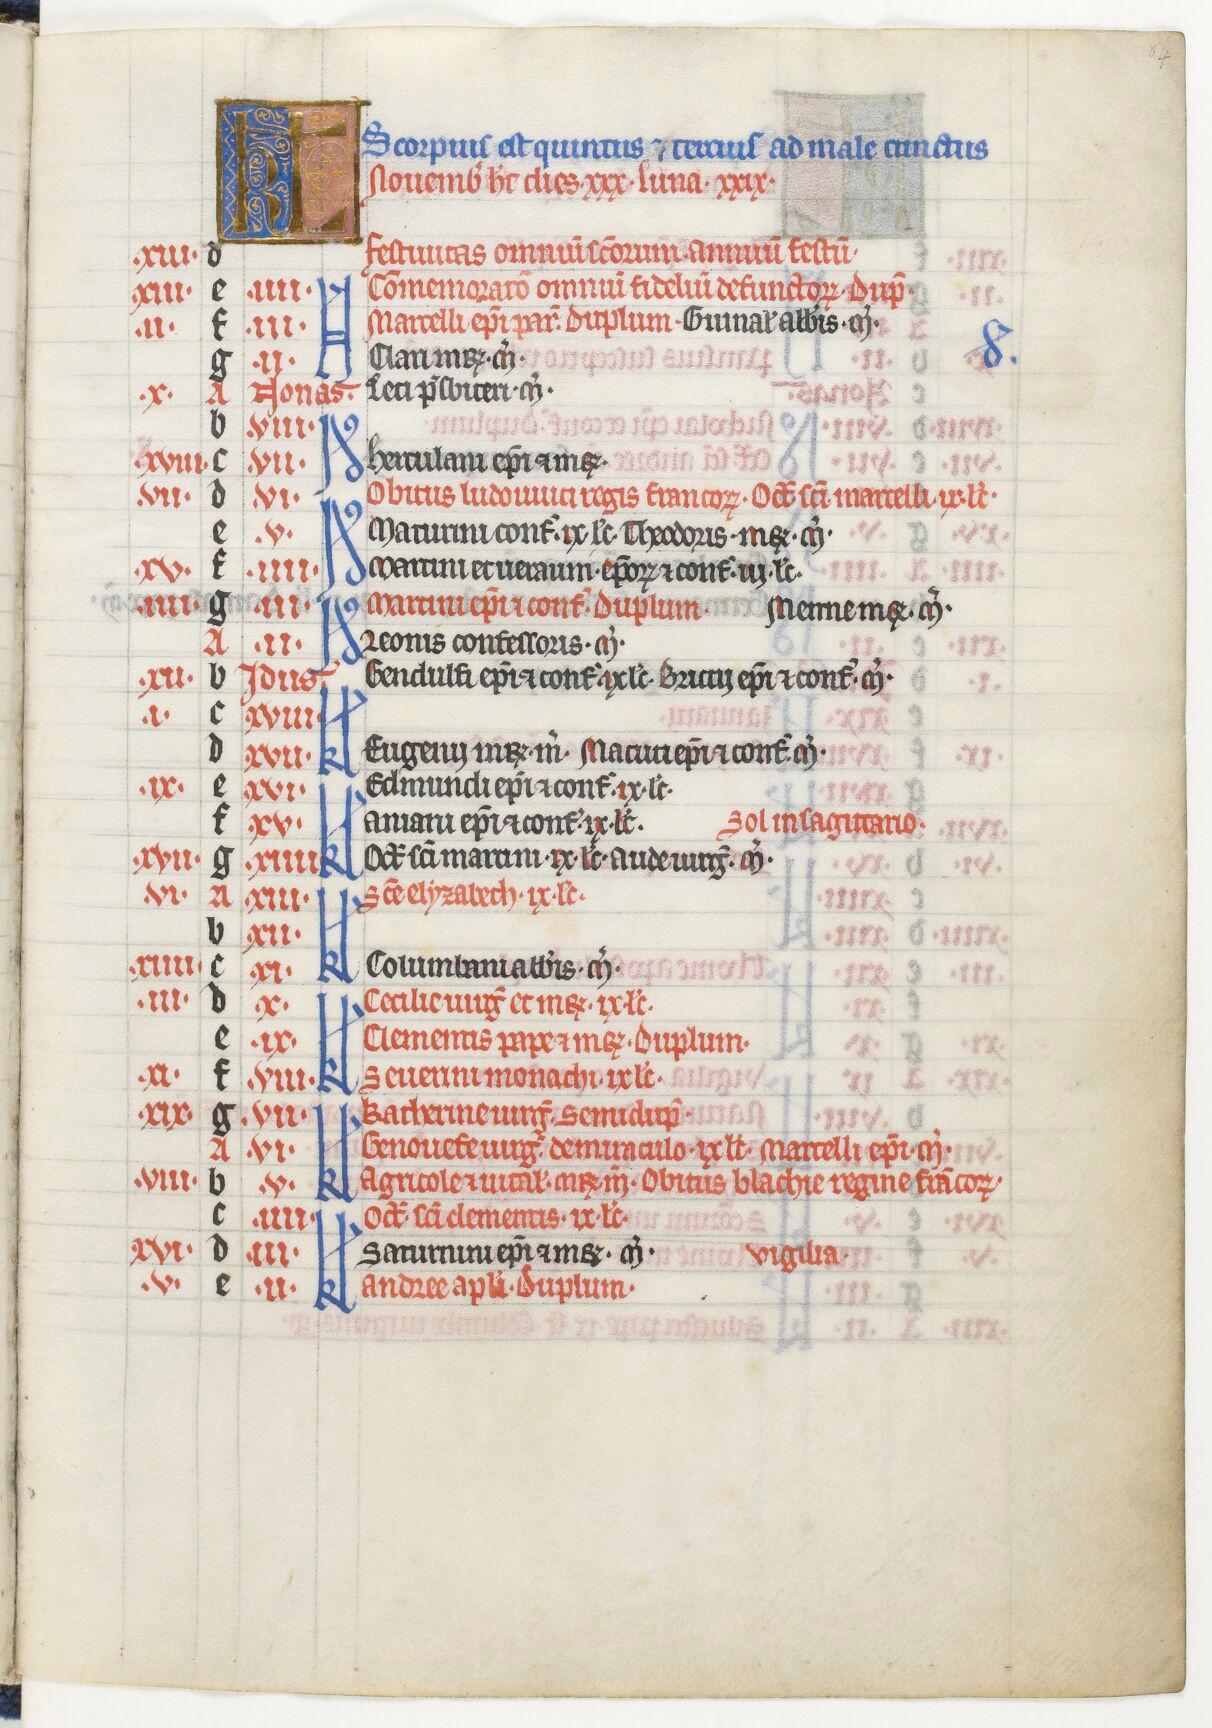 KL Scorpius est quintus ⁊ tercius ad male cunctus
Nouemb̄ hꝫ dies·xxx·luna·xxix·
·xiii· d festiuitas omniū sc̄orum·annuū festū·
·xiii· e ·iiii· N Cōmemoratō omniū fideliū defunctoꝝ·Dup̄·
·ii· f ·iii· Marcelli ep̄i par̄·duplum·Guinal̄ abb̄is·m̄·
g ·ii· N Clari mr̄·m̄·
8.
·x· A Nonas· Leti p̄sbiteri·m̄·
b ·viii· Id
·xviii· c ·vii· herculani ep̄i ⁊ mr̄·
·vii· d ·vi· Obitus ludouuici regis francoꝝ·Oct̄ sc̄i marcelli·ix·lc̄·
e ·v· Id Maturini conf̄·ix·lc̄·Theodoris·mr̄·m̄·
·xv· f ·iiii· Martini et ueranni·ep̄oꝝ ⁊ conf̄·iij·lc̄·
·iiii· g ·iii· Id Martini ep̄i ⁊ conf̄·Duplum· Menne mr̄·m̄·
A ·ii· Leonis confessoris·m̄·
·xii· b Idus Gendulfi ep̄i ⁊ conf̄·ix lc̄·Bricij ep̄i ⁊ conf̄·m̄·
·i· c xviii· Kl
d xvii· Eugenij mr̄·m̄· Macuti ep̄i ⁊ conf̄·m̄·
·ix· e xvi· Kl Edmundi ep̄i ⁊ conf̄·ix·lc̄·
f xv· aniani ep̄i ⁊ conf̄·ix·lc̄· Sol in sagittario·
·xvii· g xiiii Oct̄ sc̄i martini·ix·lc̄·aude uirḡ·m̄·
·vi· A xiii· Kl Sc̄e elyzabech·ix·lc̄·
b xii·
·xiiii· c xi· Columbani abb̄is·m̄·
·iii· d x· Kl Cecilie uirḡ et mr̄·ix·lc̄·
e ·ix· Clementis pape ⁊ mr̄·Duplum·
·xi· f ·viii· Seuerini monachi·ix lc̄·
·xix· g ·vii· Kl Katherine uirḡ·Semidup̄·
A ·vi· Genouefe uirḡ·de miraculo·ix lc̄· Marcelli ep̄i·m̄·
·viii· b ·v· Agricole ⁊ uital̄·mr̄·m̄·Obitus blachie regine frācoꝝ·
c ·iiii· Kl Oct̄·sc̄i clementis·ix·lc̄·
·xvi· d ·iii· Saturnini ep̄i ⁊ mr̄·m̄· vigilia·
·v· e ·ii· andree apl̄i·Duplum·